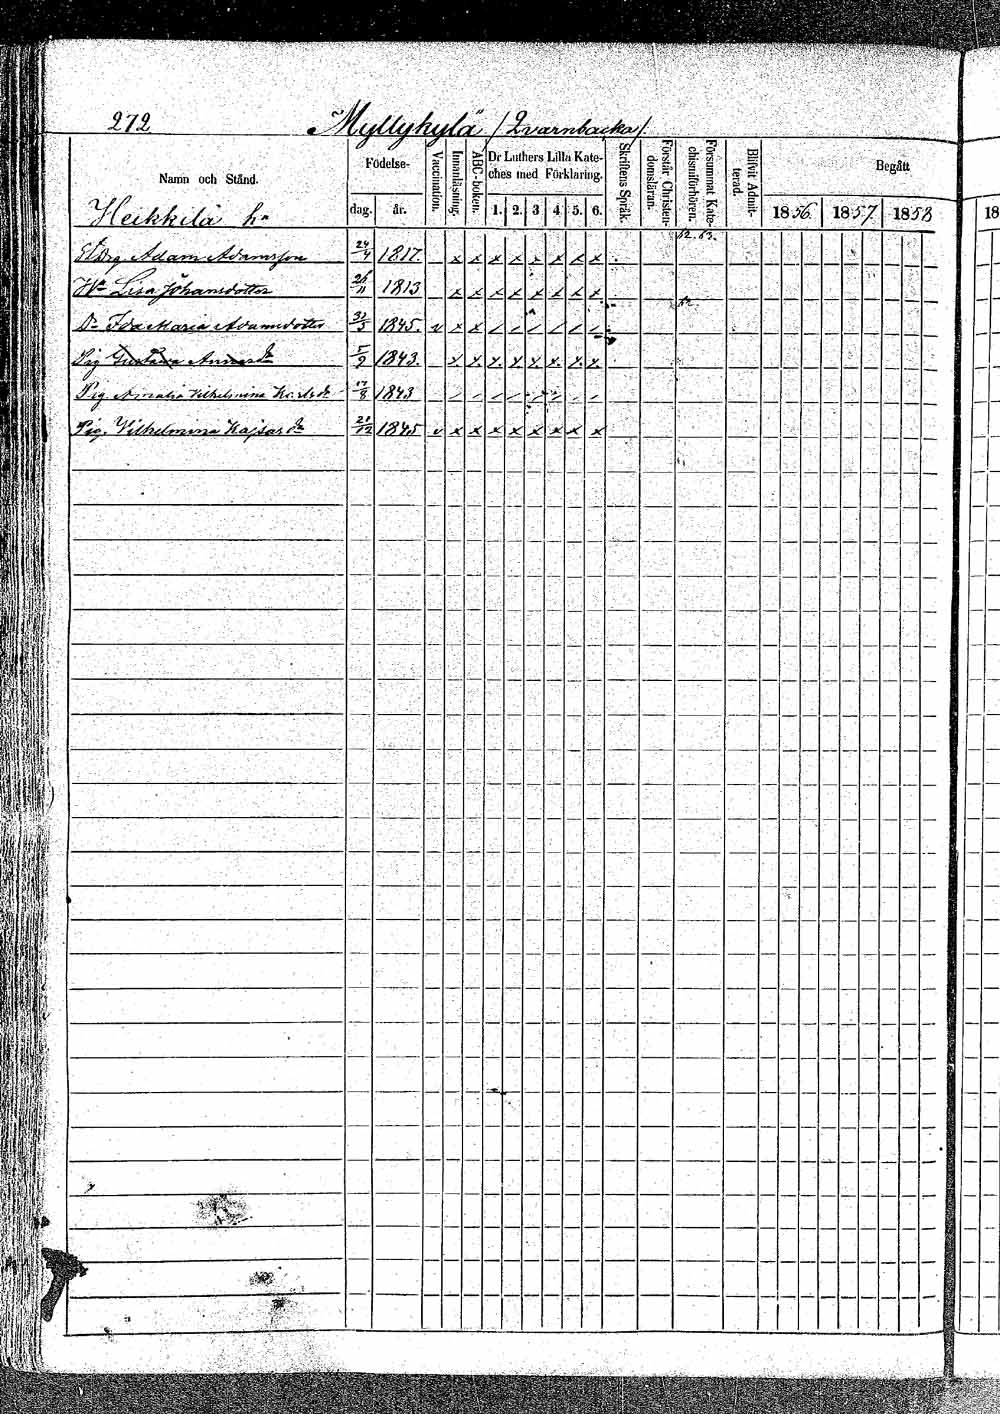 272 Myllykylä /Qvarnbacka/.
Namn och Stånd. Födelse- dag. år. Vaccination. Innanläsning. ABC-boken. Dr Luthers Lilla Kateches med Förklaring. 1. 2. 3 4. 5. 6. Skriftens Språk. Förstår Christendomsläran. Försummat Katechismiförhören. Blifvit Admitterad. Begått 1856. 1857. 1858 18
Heikkilä hn
62. 63.
Adam Adamsson 24/4 1817. x x x x x x x x
Hu Lisa Johansdotter 26/11 1813 x x x x x x x x
Dr Ida Maria Adamsdotter 31/5 1845. v x x / / / / / /
Pig Gustava Annasdr 5/9 1843. x x x x x x x x
Pig Amalia Vilhelmina 17/8 1843 / / / / / / / /
Pig. Vilhelmina Kajsasdr 21/12 1845 v x x x x x x x x